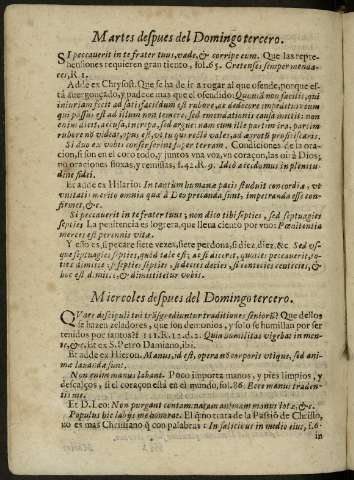 Martes despues del Domingo tercero.
SI peccaverit in te frater tuus, vade, & corripe eum. Que las repre-
hensiones requieren gran tiento, fol. 65. Cretenses semper menda-
ces, R. 1.
Adde ex Chrysost. Que se ha de ir a rogar al que ofende, porque es-
tà avergonçado, y padece mas que el ofendido: Quem non facilè, qui
iniuriam fecit ad satisfaciedum est rubore, ac dedecore impeditus: eum
qui passus est ad illum non temere, sed emendationis causa mittit: non
enim dicit, accusa, increpa, sed argue: nam cum ille partim ira, partim
rubore
Si duo ex vobis consenserint super terram. Condiciones de la ora-
cion, si son en el coro todo, y juntos vna voz, vn coraçon, las oirà Dios;
no oraciones flojas, y remissas, f. 42. R. 9. Ideò accedamus in plenitu-
dine fidei.
Et adde ex Hilario: In tantum humanae pacis studuit concordia, vt
vnitatis merito omnia quae à Deo precanda sunt, impetranda esse con-
firmet, &c.
Si peccaverit in te frater tuus; non dico tibi septies, sed septuagies
septies La penitencia es logrera, que lleva ciento por vno: Poenitentia
merces est perennis vitae.
Y esso es, si pecare siete vezes, siete perdona, si diez, diez, &c. Sed vs-
que septuagies septies, quod tale est; ac si diceret, quoties peccaverit, to-
ties dimitte: septies septies, si decies decies, si centecies centecies, &
hoc est dimitte, & dimittetur vobis.
Miercoles despues del Domingo tercero.
QVare discipuli tui trasgrediuntur traditiones seniorũ? Que dellos
se hazen zeladores, que son demonios, y solo se humillan por ser
tenidos por santos: f. 111. R. 12. d. 2. Quia humilitas vigebat in men-
te, &c. Et ex S. Petro Damiano, ibi.
Et adde ex Hieron. Manus, id est, opera nõ corporis vtique, sed ani-
mae lavanda sunt.
Non enim manus labant. Poco importa manos, y pies limpios, y
descalços, si el coraçon està en el mundo, fol. 86. Ecce manus traden-
tis me.
Et D. Leo: Non purgant contaminatam animam manus lotae, &c.
Populus hic labijs me honorat. El q̃ no trata de la Passiõ de Christo,
no es mas Christiano q̃ con palabras: In salicibus in medio eius, f. 6.
in